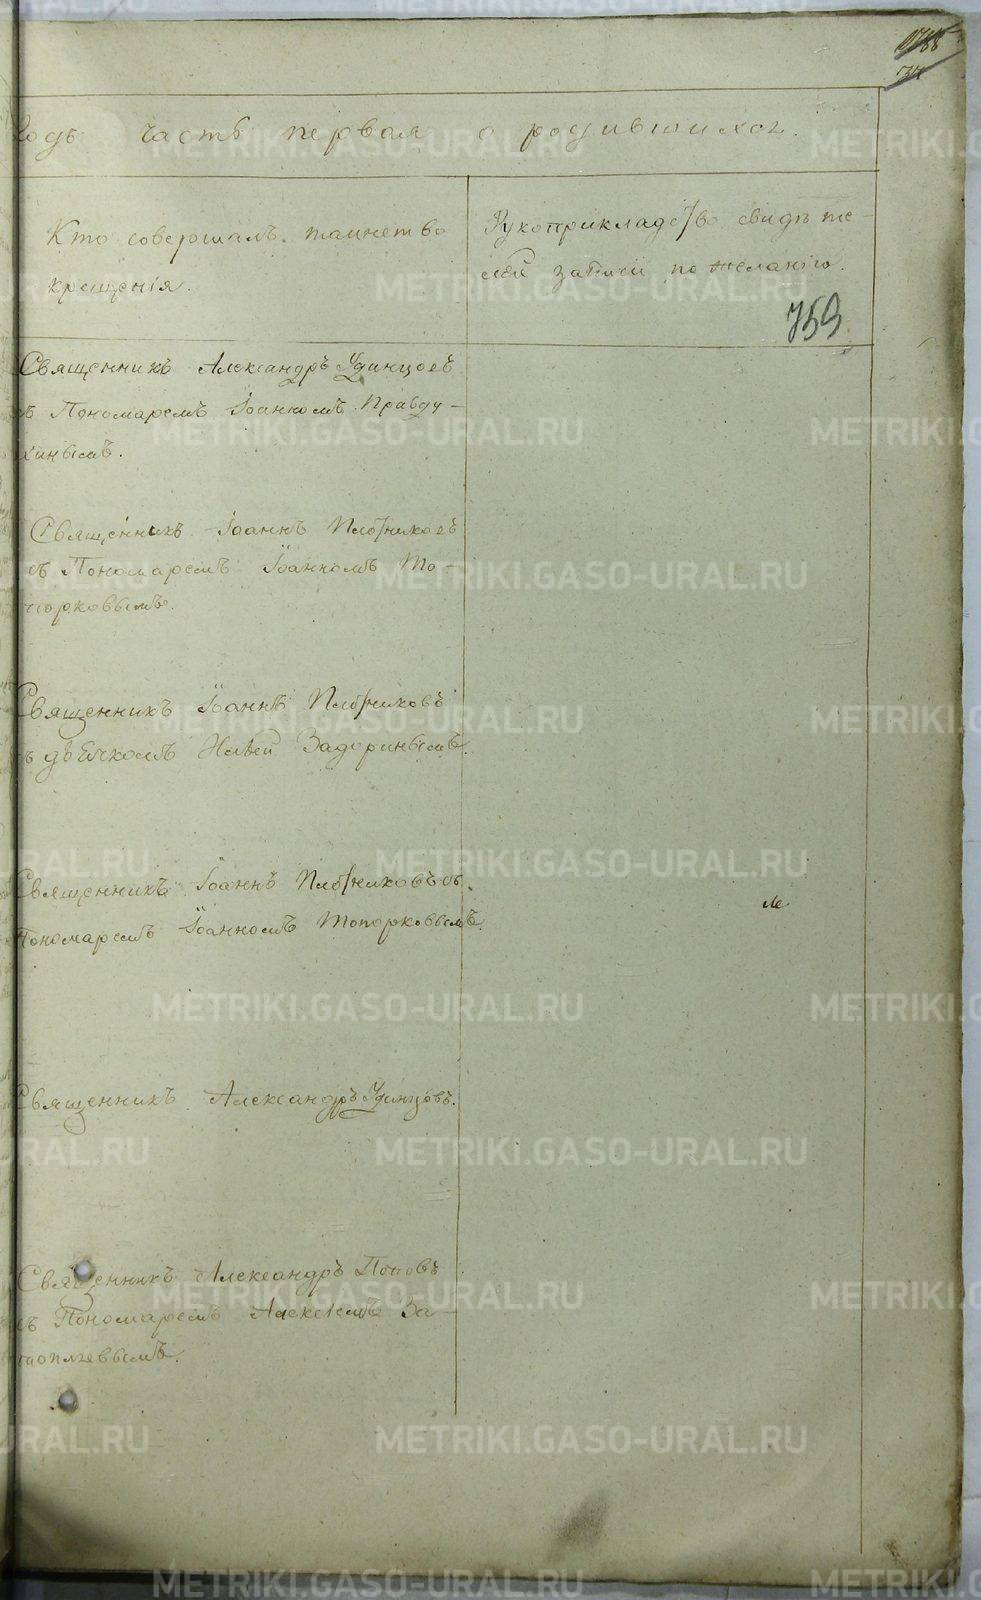 759
годъ часть первая о родившихся.
Кто совершалъ таинство
крещенія.
Рукоприкладство свидѣте-
лей записи по желанію.
Священникъ Александръ Удинцовъ
съ Пономаремъ Іоанномъ Правду-
хинымъ.
Священникъ Іоаннъ Плотниковъ
съ Пономаремъ Іоанномъ То-
порковымъ.
Священникъ Іоаннъ Плотниковъ
съ дьячкомъ Задоринымъ.
Священникъ Іоаннъ Плотниковъ съ
Пономаремъ Іоанномъ Топорковымъ.
Священникъ Александръ Удинцовъ.
Священникъ Александръ Поповъ
съ Пономаремъ Алексѣемъ За-
топляевымъ.
METRIKI.GASO-URAL.RU